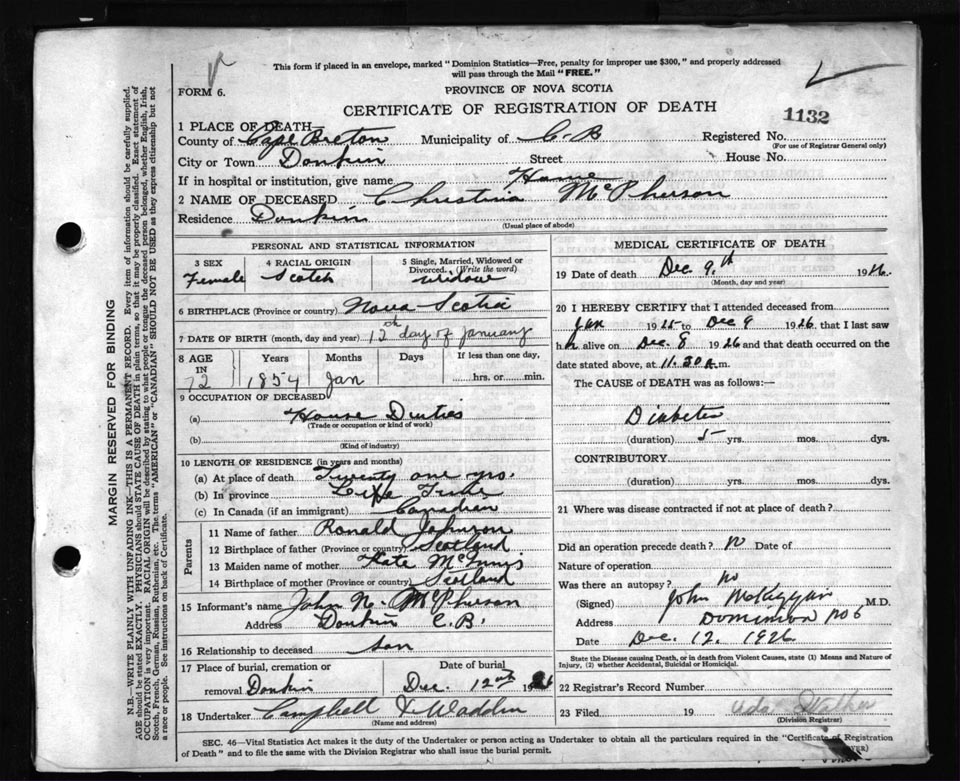 This form if placed in an envelope, marked "Dominion Statistics—Free, penalty for improper use $300," and properly addressed
will pass through the Mail "FREE."
FORM 6.
PROVINCE OF NOVA SCOTIA
CERTIFICATE OF REGISTRATION OF DEATH
1132
1 PLACE OF DEATH—
County of Cape Breton Municipality of C. B Registered No.
(For use of Registrar General only)
City or Town Donkin Street House No.
If in hospital or institution, give name Home
2 NAME OF DECEASED Christina McPherson
Residence Donkin
(Usual place of abode)
PERSONAL AND STATISTICAL INFORMATION
3 SEX Female
4 RACIAL ORIGIN Scotch
5 Single, Married, Widowed or Divorced. (Write the word) widow
6 BIRTHPLACE (Province or country) Nova Scotia
7 DATE OF BIRTH (month, day and year) 12th day of January
8 AGE IN 72 Years 1854 Months Jan Days If less than one day, hrs. or min.
9 OCCUPATION OF DECEASED
(a) House Duties
(Trade or occupation or kind of work)
(b)
(Kind of industry)
10 LENGTH OF RESIDENCE (in years and months)
(a) At place of death Twenty one yrs.
(b) In province Life Time
(c) In Canada (if an immigrant) Canadian
Parents
11 Name of father Ronald Johnson
12 Birthplace of father (Province or country) Scotland
13 Maiden name of mother Kate McInnis
14 Birthplace of mother (Province or country) Scotland
15 Informant's name John N. McPherson
Address Donkin C.B.
16 Relationship to deceased son
17 Place of burial, cremation or removal Donkin
Date of burial Dec. 12th 1926
18 Undertaker Campbell & Wadden
(Name and address)
MEDICAL CERTIFICATE OF DEATH
19 Date of death Dec. 9th 1926.
(Month, day and year)
20 I HEREBY CERTIFY that I attended deceased from
Jan 1925 to Dec 9 1926, that I last saw
h alive on Dec. 8 1926 and that death occurred on the
date stated above, at 11.30 a.m.
The CAUSE OF DEATH was as follows:—
Diabetes
(duration) 5 yrs. mos. dys.
CONTRIBUTORY
(duration) yrs. mos. dys.
21 Where was disease contracted if not at place of death?
Did an operation precede death? no Date of
Nature of operation
Was there an autopsy? no
(Signed) John M.D.
Address Dominion No 6
Date Dec. 12. 1926
State the Disease causing Death, or in death from Violent Causes, state (1) Means and Nature of
Injury, (2) whether Accidental, Suicidal or Homicidal.
22 Registrar's Record Number
23 Filed 19
(Division Registrar)
SEC. 46—Vital Statistics Act makes it the duty of the Undertaker or person acting as Undertaker to obtain all the particulars required in the "Certificate of Registration
of Death" and to file the same with the Division Registrar who shall issue the burial permit.
MARGIN RESERVED FOR BINDING
N.B. WRITE PLAINLY WITH UNFADING INK—THIS IS A PERMANENT RECORD. Every item of information should be carefully supplied.
AGE should be stated EXACTLY. PHYSICIANS should STATE CAUSE OF DEATH in plain terms, so that it may be properly classified. Exact statement of
OCCUPATION is very important. RACIAL ORIGIN will be described by stating to what people or tongue the deceased person belonged, whether English, Irish,
Scotch, French, German, Russian, Ruthenian, etc. The terms "AMERICAN" or "CANADIAN" SHOULD NOT BE USED as they express citizenship but not
a race or people. See instructions on back of Certificate.